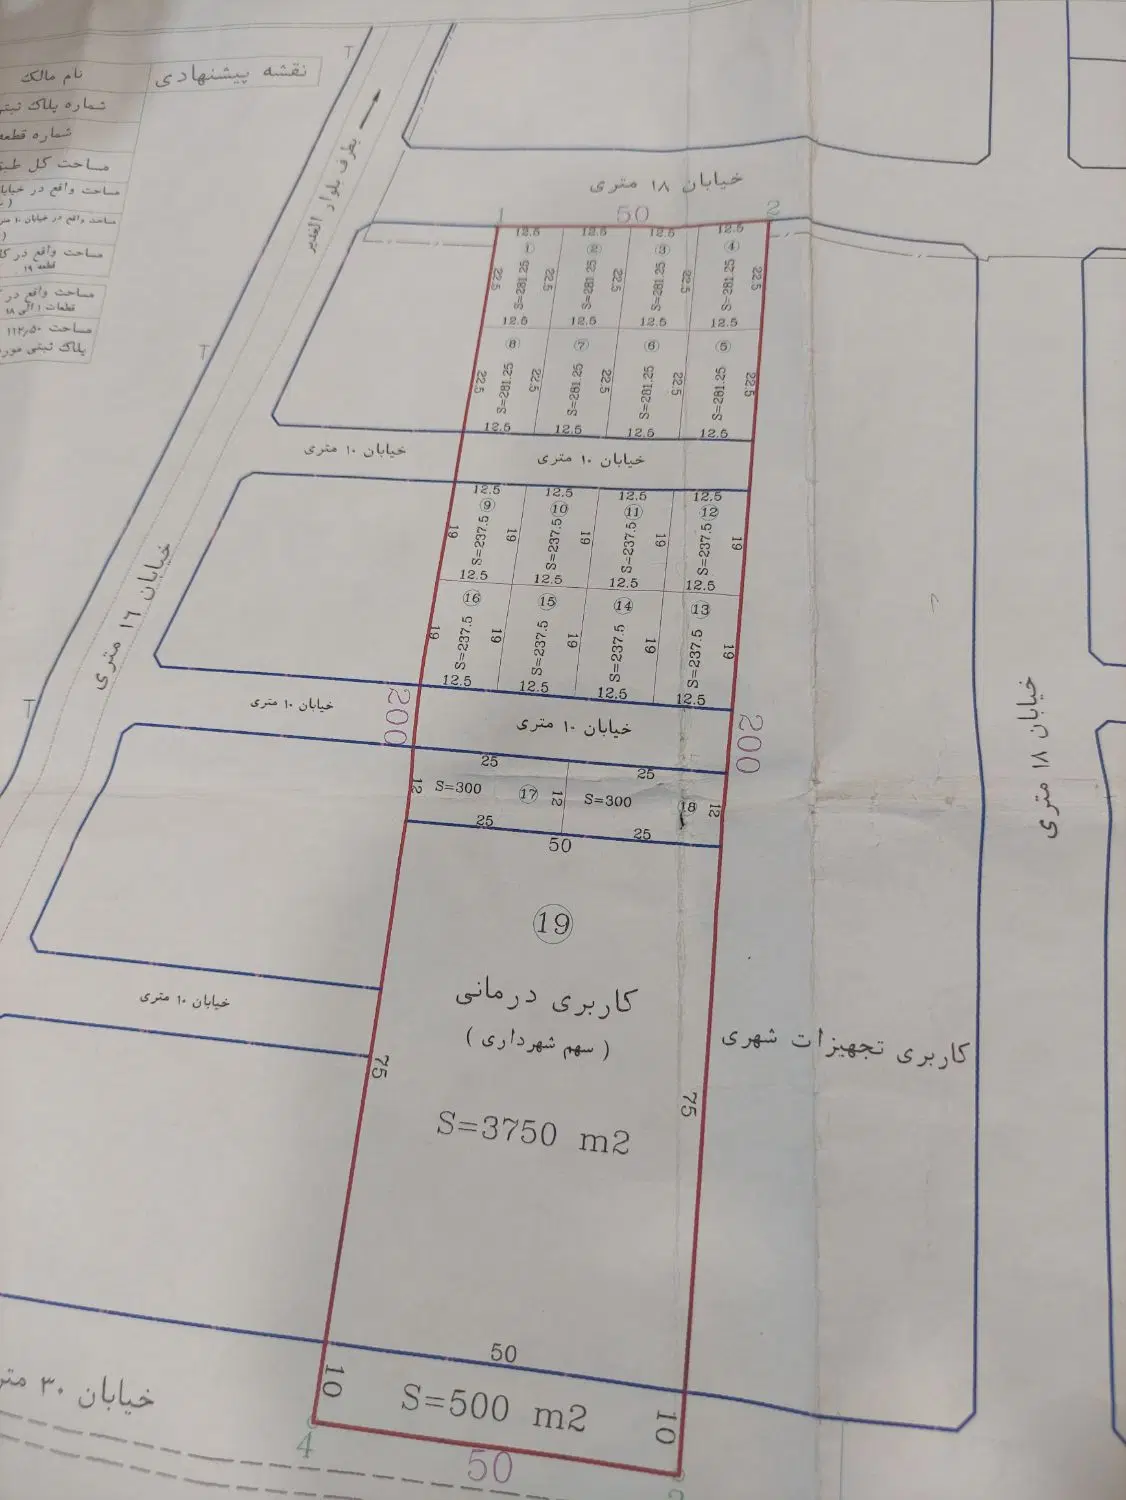 نقشه پیشنهادی
نام مالک
شماره پلاک ثبتی
شماره قطعه
مساحت کل طبق
مساحت واقع در خیابان
مساحت واقع در خیابان ۱۰ متری
مساحت واقع در
قطعه ۱۹
مساحت واقع در
قطعات ۱ الی ۱۸
مساحت ۱۱۲٫۵۰
پلاک ثبتی مورد
T
بطرف بلوار الغدیر
خیابان ۱۸ متری
1 50 2
12.5 12.5 12.5 12.5
1 2 3 4
22.5 S=281.25 22.5 S=281.25 22.5 S=281.25 22.5 S=281.25 22.5
12.5 12.5 12.5 12.5
8 7 6 5
T
22.5 S=281.25 22.5 S=281.25 22.5 S=281.25 22.5 S=281.25 22.5
12.5 12.5 12.5 12.5
خیابان ۱۰ متری
خیابان ۱۰ متری
12.5 12.5 12.5 12.5
9 10 11 12
19 S=237.5 19 S=237.5 19 S=237.5 19 S=237.5 19
12.5 12.5 12.5 12.5
16 15 14 13
19 S=237.5 19 S=237.5 19 S=237.5 19 S=237.5 19
12.5 12.5 12.5 12.5
خیابان ۱۶ متری
T
200
خیابان ۱۰ متری
خیابان ۱۰ متری
200
خیابان ۱۸ متری
25 25
12 S=300 17 12 S=300 18 12
25 25
50
19
کاربری درمانی
( سهم شهرداری )
S=3750 m2
75
75
خیابان ۱۰ متری
کاربری تجهیزات شهری
50
10 S=500 m2 10
خیابان ۳۰ متر
4 50